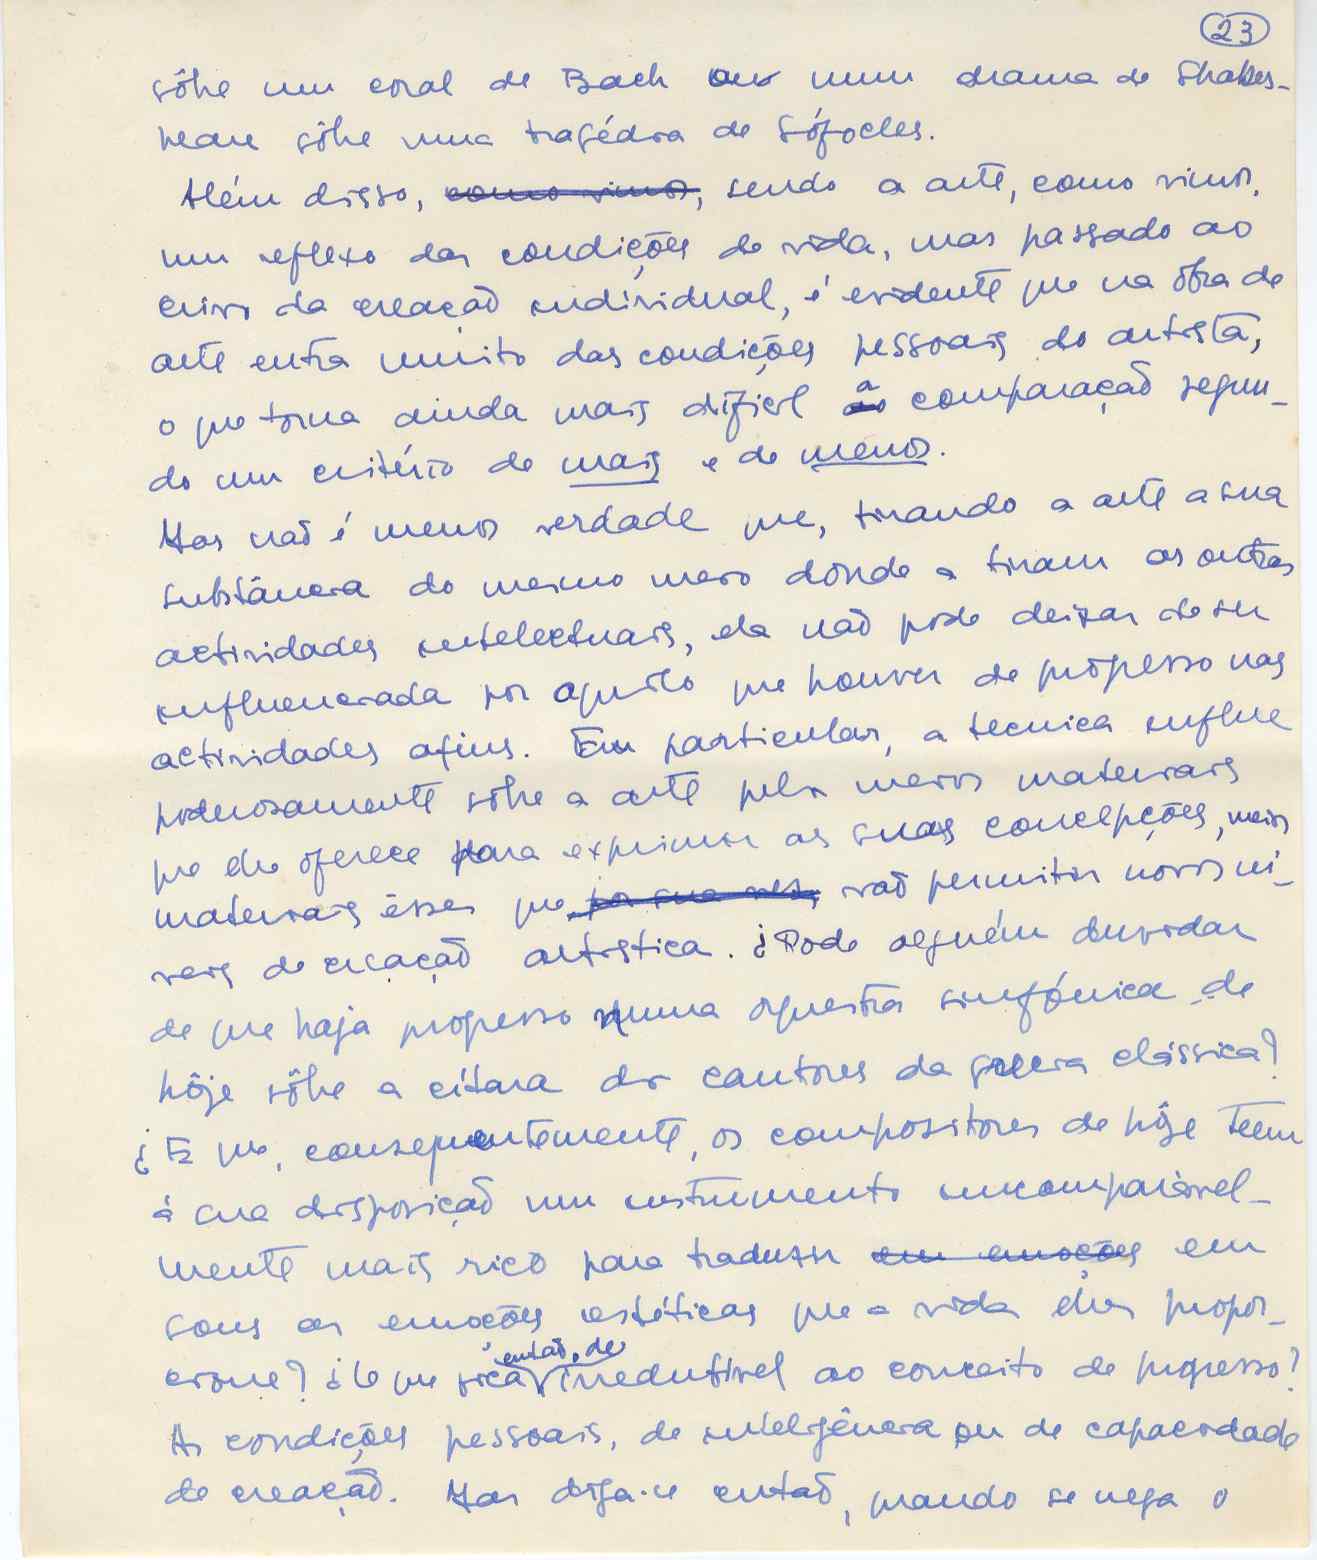 23
sôbre um coral de Bach ou num drama de Shakes-
peare sôbre uma tragédia de Sófocles.
Além disso, como vimos, sendo a arte, como vimos,
um reflexo das condições de vida, mas passado ao
crivo da creação individual, é evidente que na obra de
arte entra muito das condições pessoais do artista,
o que torna ainda mais difícil a comparação segun-
do um critério de mais e de menos.
Mas não é menos verdade que, tirando a arte a sua
substância do mesmo meio donde a tiram as outras
actividades intelectuais, ela não pode deixar de ser
influenciada por aquilo que houver de progresso nas
actividades afins. Em particular, a técnica influe
poderosamente sôbre a arte pelos meios materiais
que lhe oferece para exprimir as suas concepções, meios
materiais êsses que por sua vez, vão permitir novos ní-
veis de creação artística. ¿Pode alguém duvidar
de que haja progresso numa orquestra sinfónica de
hôje sôbre a cítara dos cantores da Grécia clássica?
¿E que, consequentemente, os compositores de hôje teem
á sua disposição um instrumento incomparável-
mente mais rico para traduzir em emoções em
sons as emoções estéticas que a vida lhes propor-
cione? ¿O que fica, então, de irredutível ao conceito de progresso?
As condições pessoais, de inteligência ou de capacidade
de creação. Mas diga-se então, quando se nega o